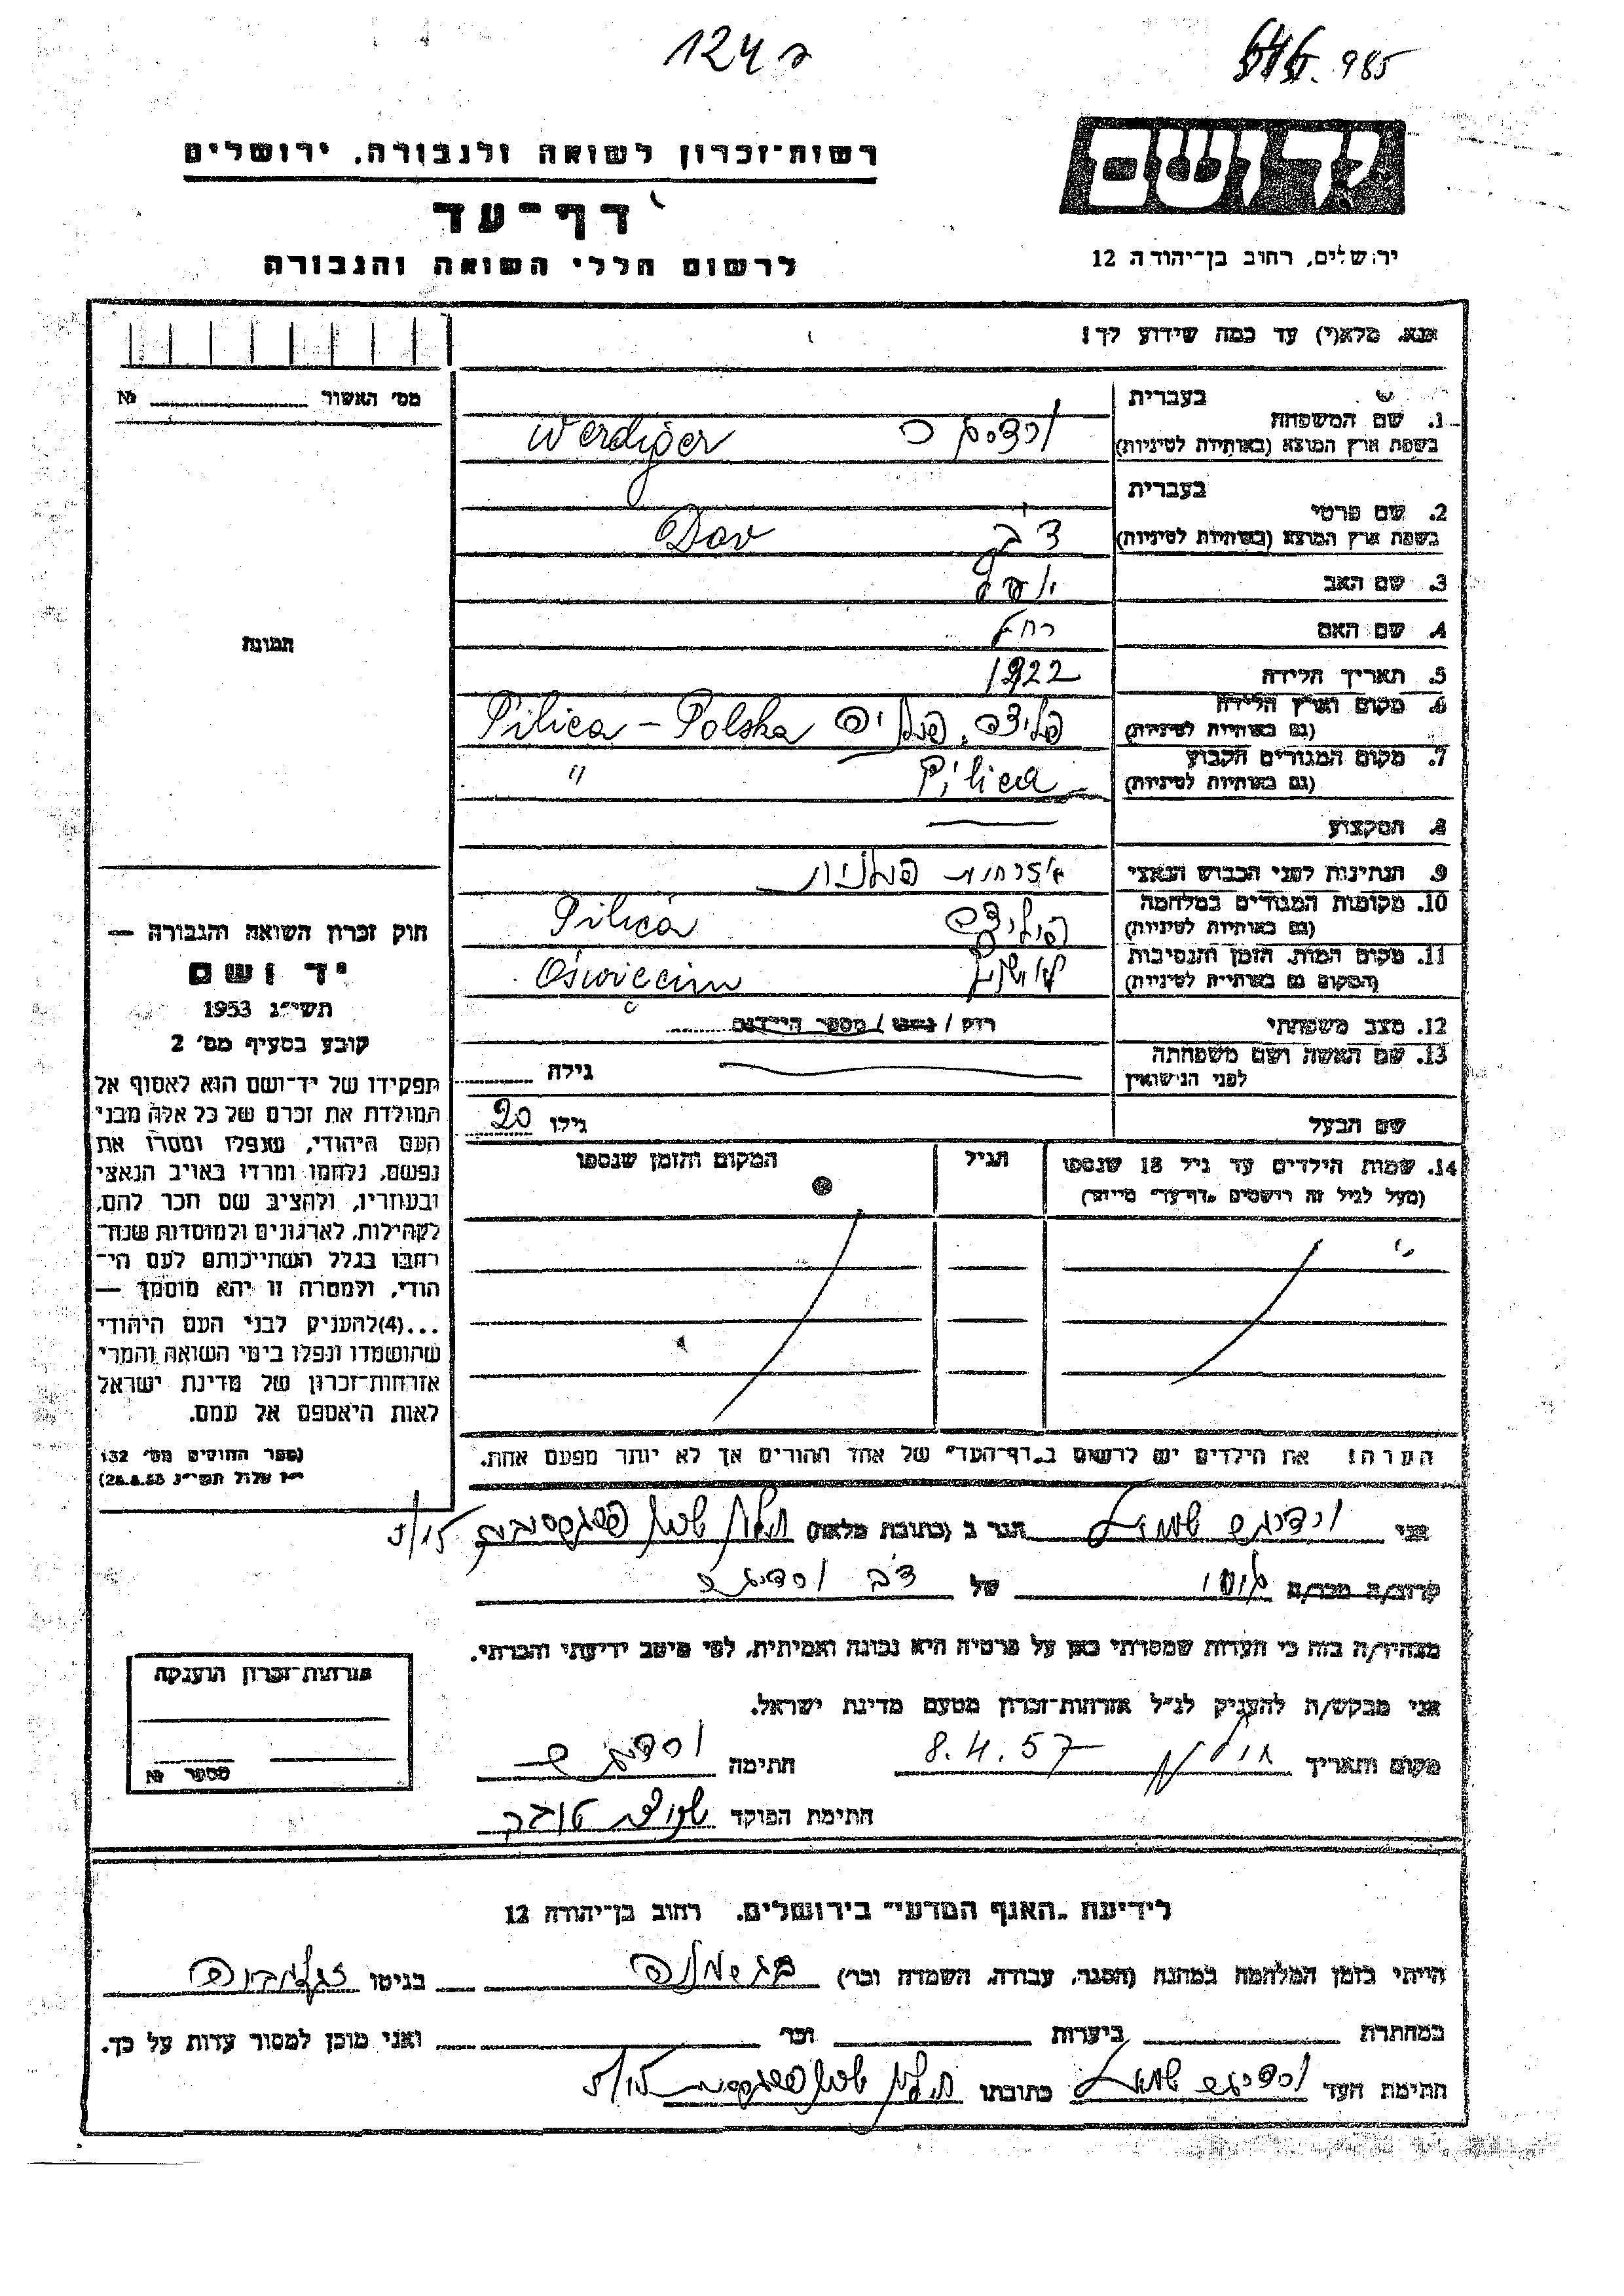 124 ג
985
יד ושם
רשות-זכרון לשואה ולגבורה, ירושלים
דף-עד
לרשום חללי השואה והגבורה
ירושלים, רחוב בן-יהודה 12
אנא, מלא(י) עד כמה שידוע לך!
מס' האשור № 
1. שם המשפחה
בעברית
בשפת ארץ המוצא (באותיות לטיניות)
Werdiger
2. שם פרטי
בעברית
בשפת ארץ המוצא (באותיות לטיניות)
דב Dov
3. שם האב יוסף
4. שם האם רחל
5. תאריך הלידה 1922
6. מקום וארץ הלידה
(גם באותיות לטיניות)
פיליצה, פולין Pilica - Polska
7. מקום המגורים הקבוע
(גם באותיות לטיניות)
Pilica "
8. המקצוע —
9. הנתינות לפני הכבוש הנאצי אזרחות פולנית
10. מקומות המגורים במלחמה
(גם באותיות לטיניות)
פיליצה Pilica
11. מקום המות, הזמן והנסיבות
(המקום גם באותיות לטיניות)
Oświęcim
12. מצב משפחתי רוק / נשוי / מספר הילדים
13. שם האשה ושם משפחתה
לפני הנישואין
גילה
שם הבעל גילו 20
14. שמות הילדים עד גיל 18 שנספו
(מעל לגיל זה רושמים "דף-עד" מיוחד)
הגיל
המקום והזמן שנספו
הערה! את הילדים יש לרשום ב"דף-העד" של אחד ההורים אך לא יותר מפעם אחת.
תמונה
חוק זכרון השואה והגבורה —
יד ושם
תשי"ג 1953
קובע בסעיף מס' 2
תפקידו של יד-ושם הוא לאסוף אל
המולדת את זכרם של כל אלה מבני
העם היהודי, שנפלו ומסרו את
נפשם, נלחמו ומרדו באויב הנאצי
ובעוזריו, ולהציב שם וזכר להם,
לקהילות, לארגונים ולמוסדות שנח-
רבו בגלל השתייכותם לעם הי-
הודי, ולמטרה זו יהא מוסמך —
...(4) להעניק לבני העם היהודי
שהושמדו ונפלו בימי השואה והמרי
אזרחות-זכרון של מדינת ישראל
לאות היאספם אל עמם.
(ספר החוקים מס' 132
י"ז אלול תשי"ג 28.8.53)
אני ורדיגר שמואל הגר ב (כתובת מלאה) חולון 5/15
קרוב/ה מכר/ה גיסו של דב ורדיגר
מצהיר/ה בזה כי העדות שמסרתי כאן על פרטיה היא נכונה ואמיתית, לפי מיטב ידיעתי והכרתי.
אני מבקש/ת להעניק לנ"ל אזרחות-זכרון מטעם מדינת ישראל.
מקום ותאריך חולון 8.4.57 חתימה ורדיגר ש
חתימת הפוקד
אזרחות-זכרון הוענקה
מספר №
לידיעת "האגף המדעי" בירושלים, רחוב בן-יהודה 12
הייתי בזמן המלחמה במחנה (הסגר, עבודה, השמדה וכו') בגרמניה בגיטו
במחתרת ביערות וכו' ואני מוכן למסור עדות על כך.
חתימת העד ורדיגר שמואל כתובתו חולון 5/15